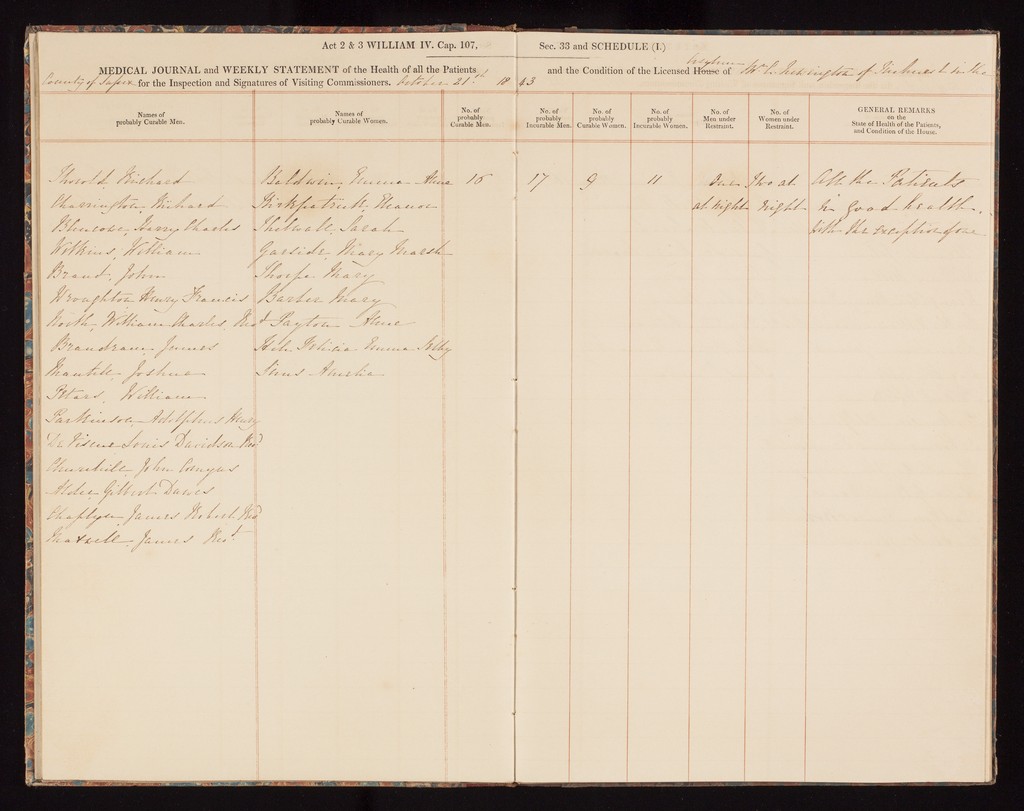 Act 2 & 3 WILLIAM IV. Cap. 107, Sec. 33 and SCHEDULE (I.)
MEDICAL JOURNAL and WEEKLY STATEMENT of the Health of all the Patients and the Condition of the Licensed House of Asylum Mr C. Newington of Ticehurst in the
County of Sussex for the Inspection and Signatures of Visiting Commissioners. October 21st 1843
Names of probably Curable Men.
Names of probably Curable Women.
No. of probably Curable Men.
No. of probably Incurable Men.
No. of probably Curable Women.
No. of probably Incurable Women.
No. of Men under Restraint.
No. of Women under Restraint.
GENERAL REMARKS on the State of Health of the Patients, and Condition of the House.
Thorold, Richard Baldwin, Emma Anne 16 17 9 11 One Two at All the Patients
Charrington Richard Kirkpatrick, Eleanor at night night in good health
Blencowe, Harry Charles Thelwall, Sarah with the exception of one
Wilkins, William Garside, Mary Marsh
Brand, John Thorpe Mary
Wroughton Henry Francis Barber Mary
North, William Charles, Revd Payton Anne
Brandram James Felicia Emma Selby
Mantell Joshua Sims Amelia
Peters, William
Parkinson Adolphus Henry
De Visme Louis Davidson Revd
Churchill John
Alder Gilbert Dawes
James Robert Revd
Maxwell James Revd